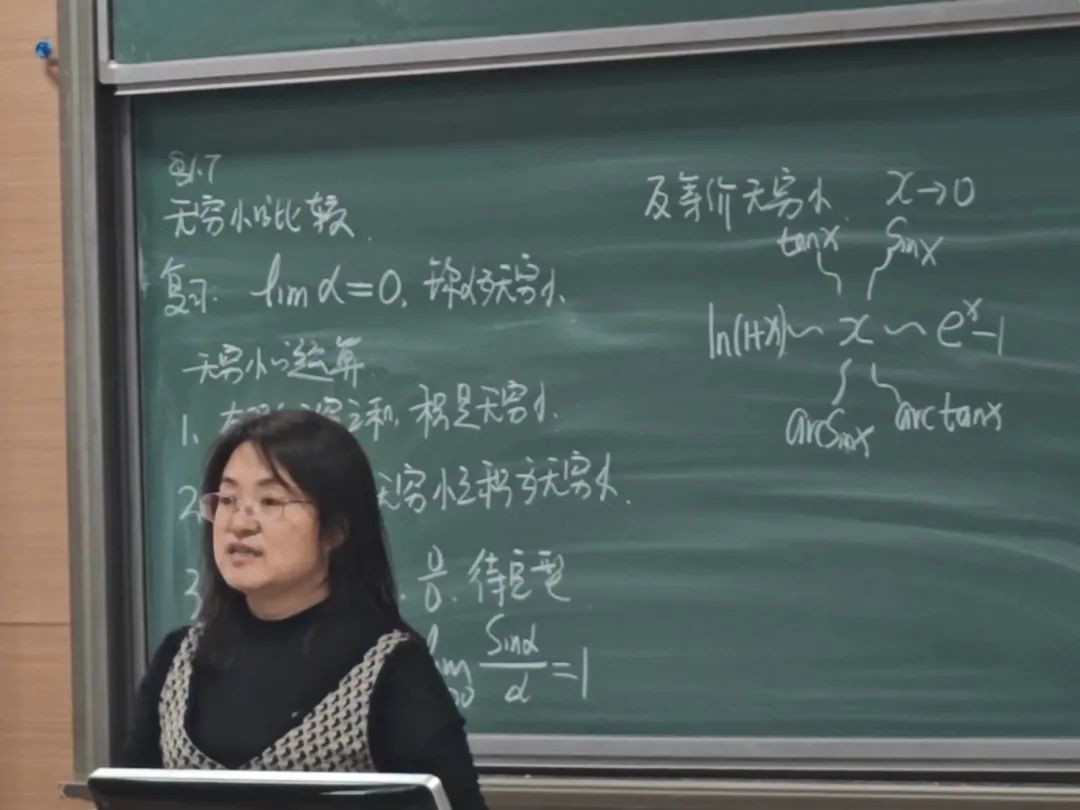 §1.7
无穷小的比较.
复习. lim α=0, 称α为无穷小.
无穷小的运算.
1、 穷之和, 积是无穷小.
2、 无穷小之积为无穷小.
3 . 0/0. 待定型
lim sinα/α =1
反等价无穷小. x→0
tanx sinx
ln(1+x) ~ x ~ e^x-1
arcsinx arctanx